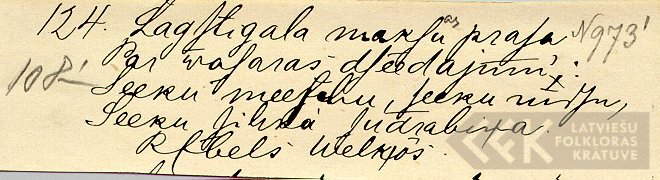 124. Lagstigala maksu prasa N973¹
108¹ Par wasaras dseedajumu;
Seeku meeschu, seeku rudsu,
Seeku sihka sudrabiņa.
R. Ebels Welkjōs.
LATVIEŠU
FOLKLORAS
KRĀTUVE